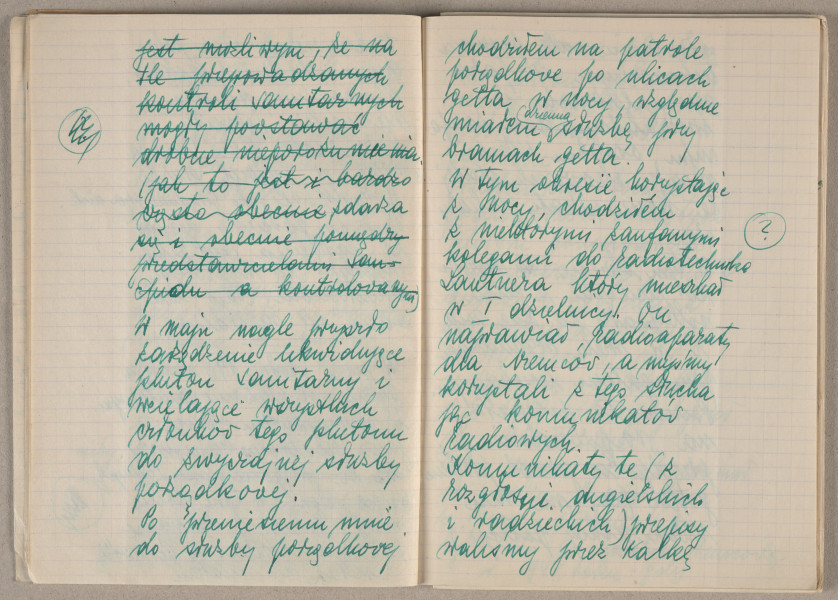 jest możliwym, że na
tle przeprowadzanych
kontroli sanitarnych
mogły powstawać
drobne nieporozumienia
(jak to jest i bardzo
często obecnie zdarza
się i obecnie pomiędzy
przedstawicielami San-
epidu a kontrolowanymi)
W maju nagle przyszło
zarządzenie likwidujące
pluton sanitarny i
wcielające wszystkich
członków tego plutonu
do zwyczajnej służby
porządkowej.
Po przeniesieniu mnie
do służby porządkowej
chodziłem na patrole
porządkowe po ulicach
getta w nocy, względnie
miałem dzienną służbę przy
bramach getta.
W tym okresie korzystając
z nocy, chodziłem
z niektórymi zaufanymi
?
kolegami do radiotechnika
Lautnera który mieszkał
w I dzielnicy. On
naprawiał radioaparaty
dla Niemców, a myśmy
korzystali z tego słucha
jąc komunikatów
radiowych.
Komunikaty te (z
rozgłośni angielskich
i radzieckich) przepisy
waliśmy przez kalkę